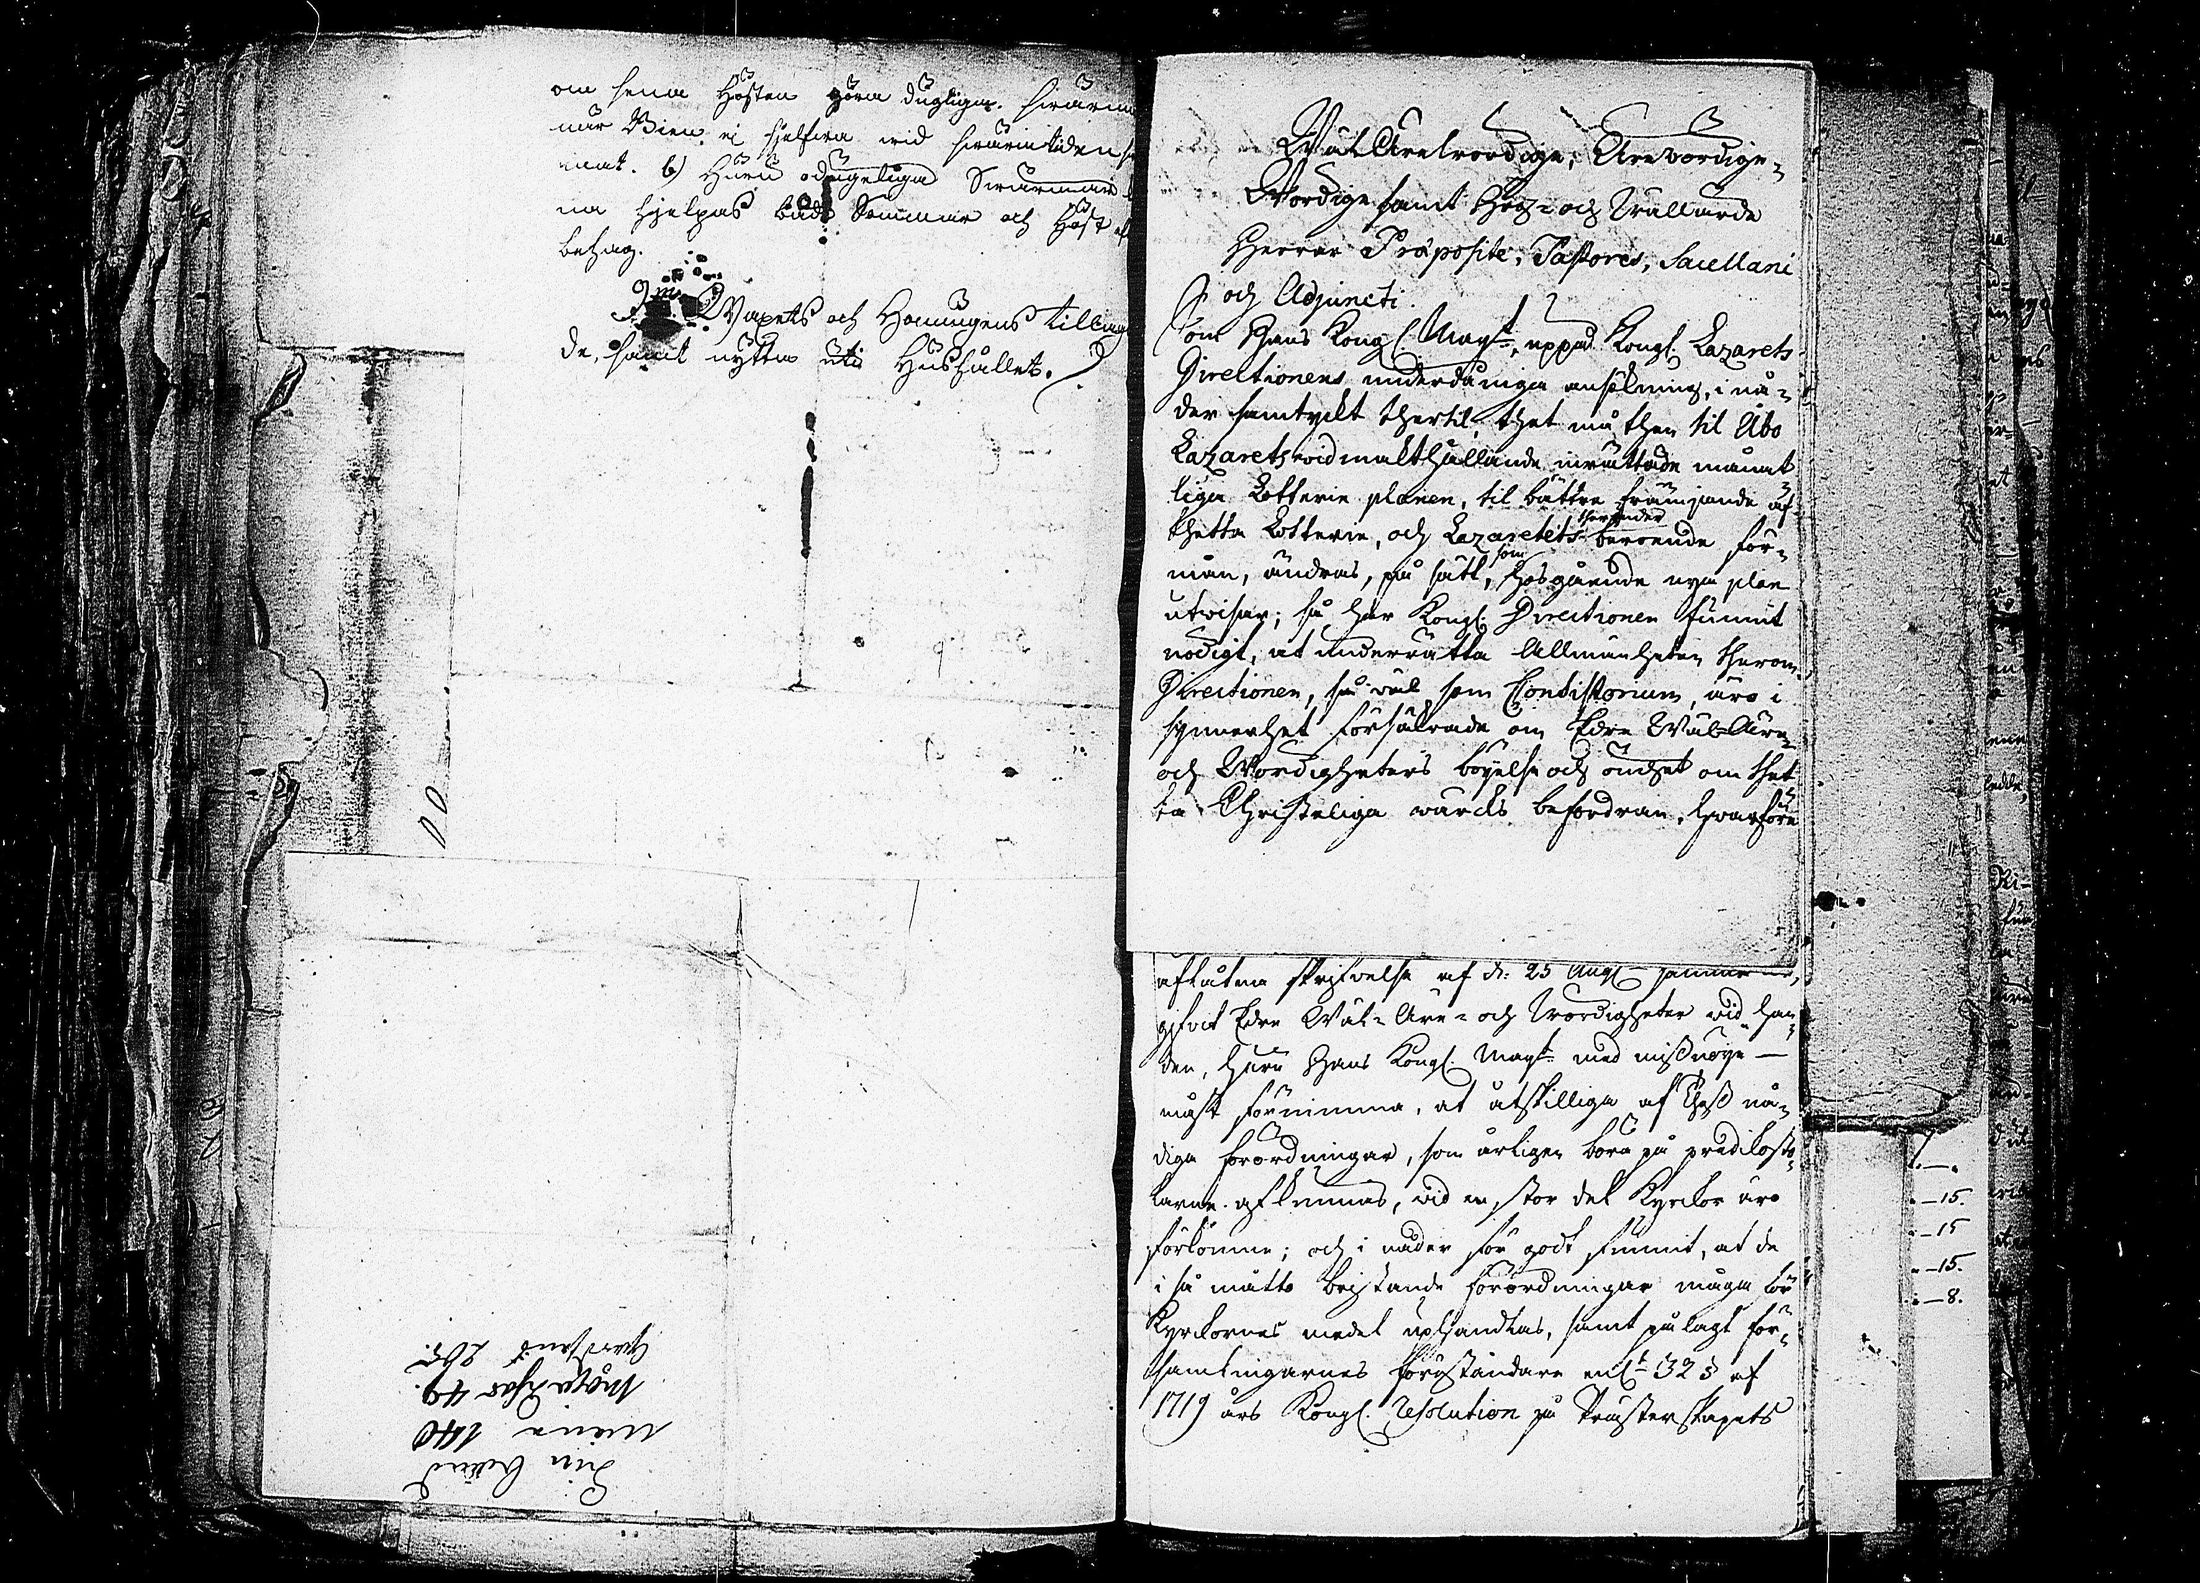 om sena Hösten göra dugliga. swärm
när Bien ej hielfva wid swärmtiden
mat. 6) Huru odugeliga Swärmar
na hjelpas både Sommar och Höst
behag.
9. Waxets och Honungens tillag
de, samt nyttan uti Hushållet.
Erin Ceklund
Maria 140
49.
265.
WälÄrewördige, Ärewördige,
Wördige samt Hög- och Wällärde
Herrar Præposite, Pastores, Sacellani
och Adjuncti.
Som Hans Kongl. Mayt, uppå Kongl. Lazarets
Directionens underdåniga ansökning, i nå-
der samtyckt thertil, thet må then til Åbo
Lazarets widmakthållande inrättade månat
liga Lotterie planen, til bättre främjande af
thetta Lotterie, och Lazarettets therunder beroende för-
mån, ändras, på sätt, som hosgående nya plan
utwisar; så har Kongl. Directionen funnit
nödigt, at underrätta Allmänheten therom.
Directionen, så wäl som Consistorium, äro i
synnerhet försäkrade om Edre Wäl-Äre-
och Wördigheters böyelse och ömhet om thet
ta Christeliga wärcks befordran, hwarföre
aflåtne skrifwelse af d. 25 Aug
gifwit Edre Wäl- Äre- och Wördigheter wid han
den, huru Hans Kongl. Mayt med missnöye
måst förnimma, at åtskillige af Thess nå-
diga förordningar, som årligen böra på predikosto-
larne afkunnas, wid en stor del Kyrckor äro
förkomne; och i nåder för godt funnit, at de
i så måtto bristande förordningar måga för
Kyrckornes medel uphandlas, samt pålagt för-
samlingarnes föreståndare enl. 32 § af
1719 års Kongl. Resolution på Prästerskapets
15.
15
15.
8.